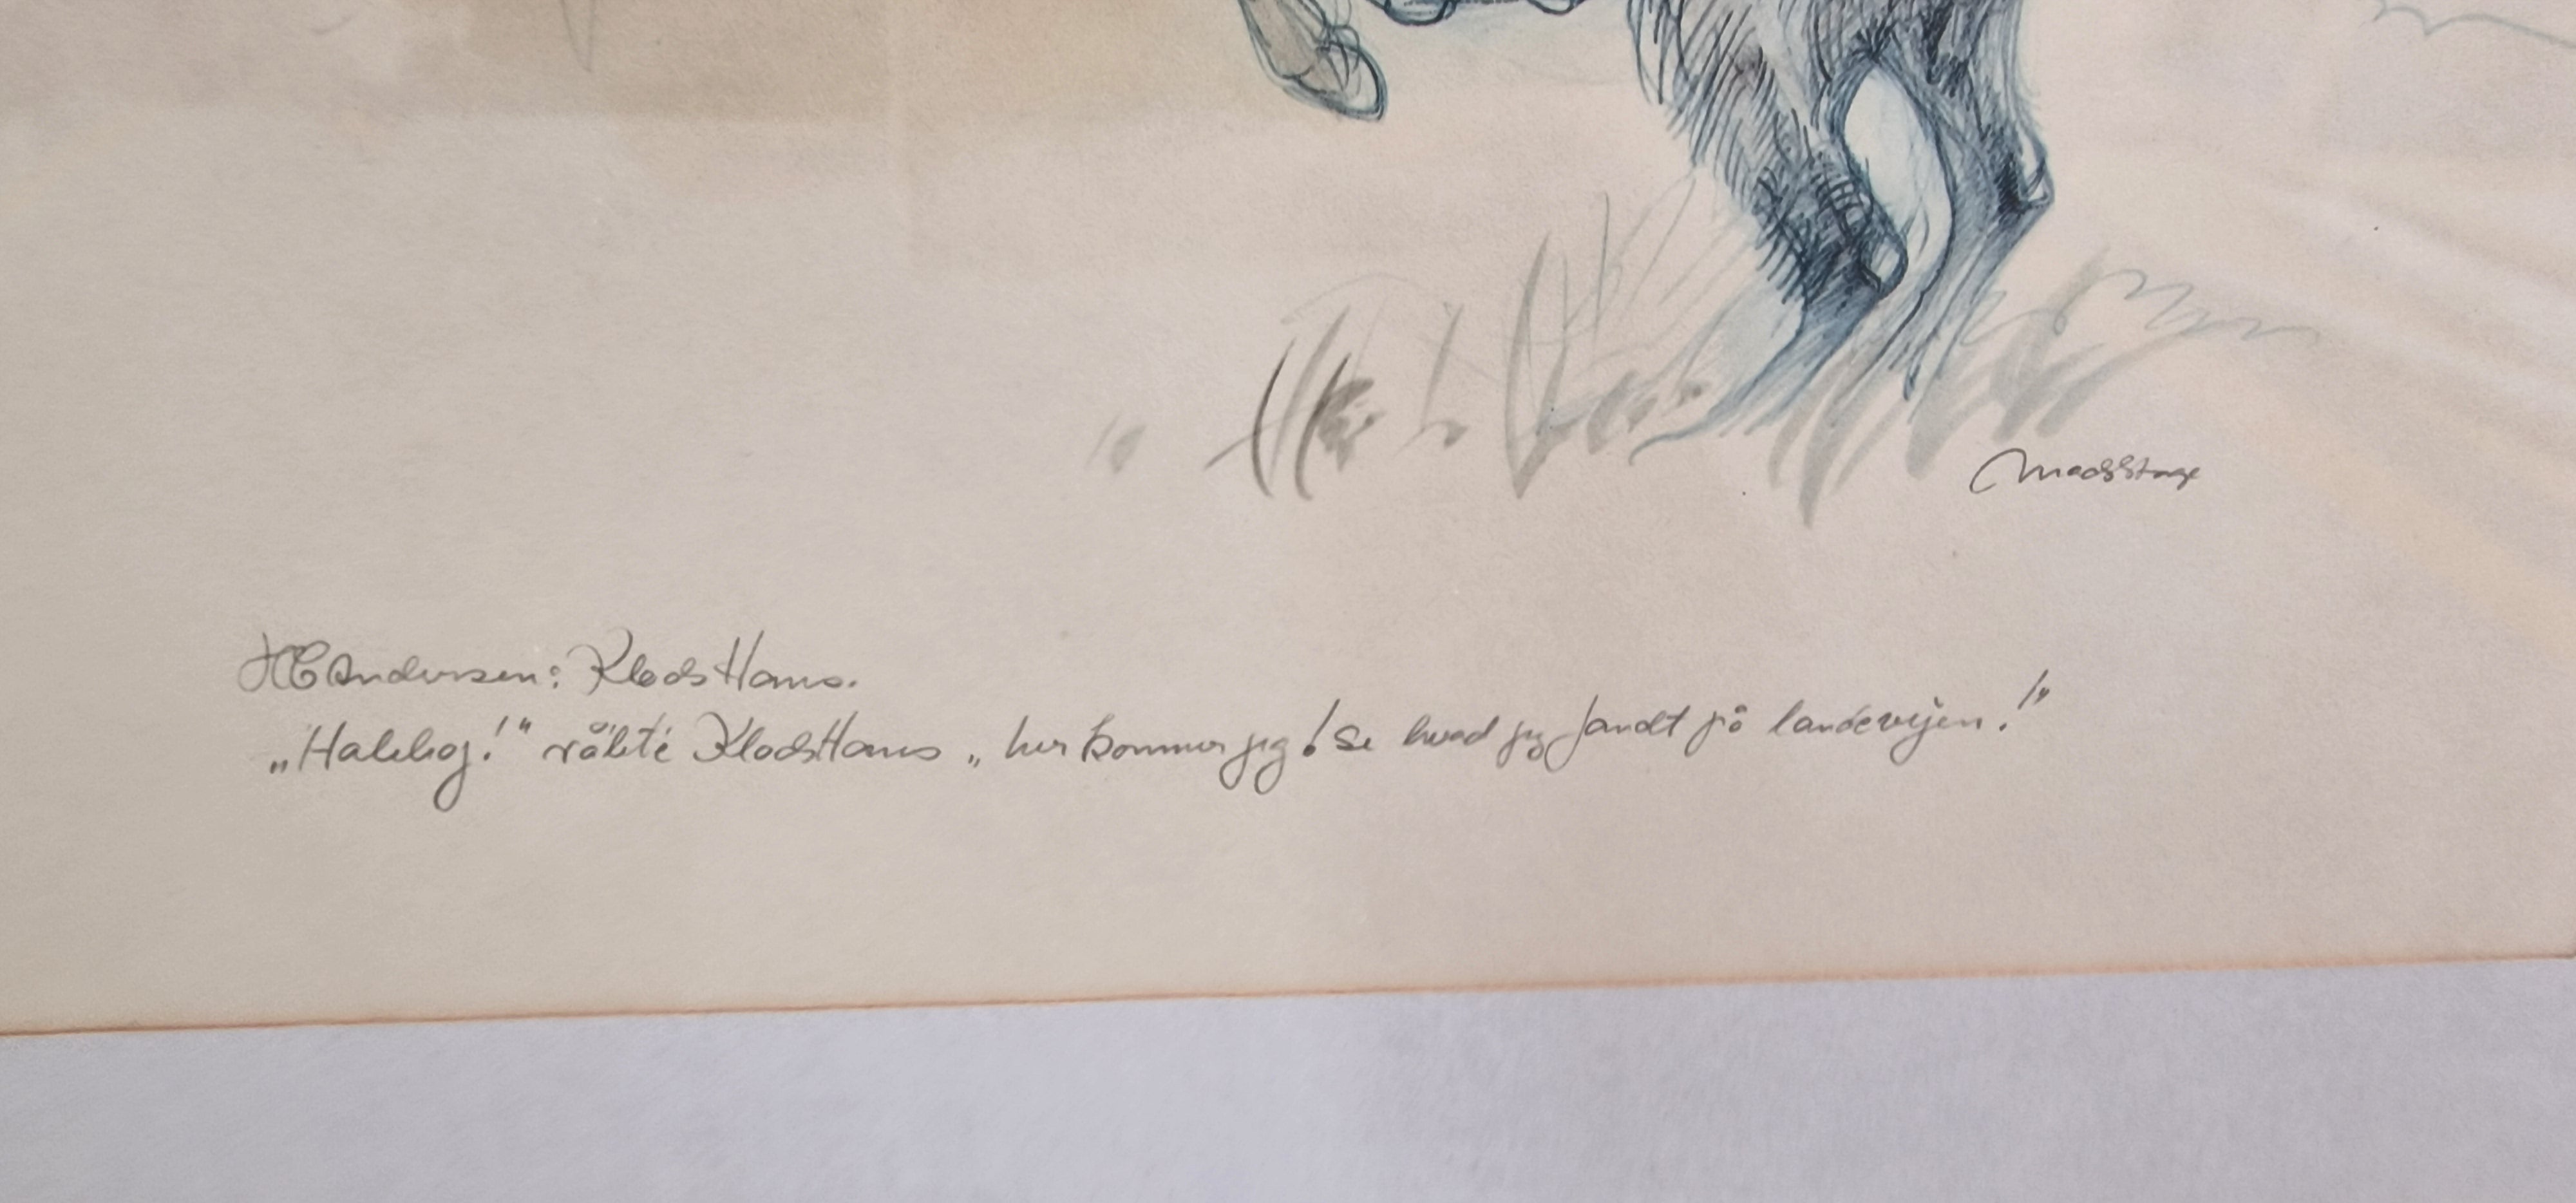 Mads Stage
HC Andersen: Klods Hans.
„Halehoj!" råbte Klods Hans „ her kommer jeg! Se hvad jeg fandt på landevejen!"